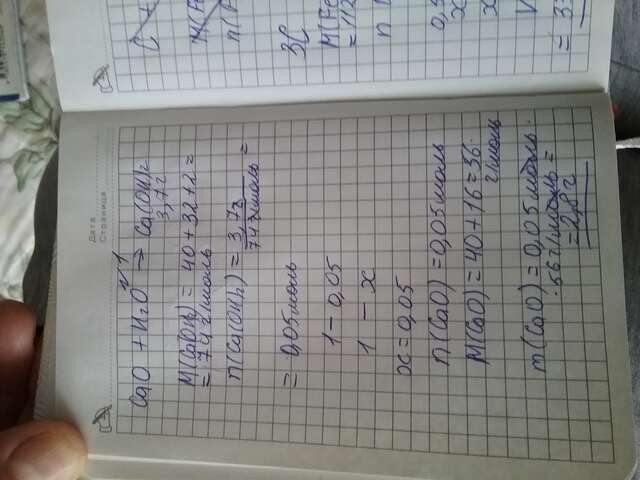 Дата
Страница
№1
CaO + H₂O → Ca(OH)₂
3,7г
M(Ca(OH)₂) = 40 + 32 + 2 =
= 74 г/моль
n(Ca(OH)₂) = 3,7г / 74 г/моль =
= 0,05 моль
1 – 0,05
1 – x
x = 0,05
n(CaO) = 0,05 моль
M(CaO) = 40 + 16 = 56
г/моль
m(CaO) = 0,05 моль ·
· 56 г/моль =
= 2,8 г
M(Fe
= 112
n
0,
x
x
= 3